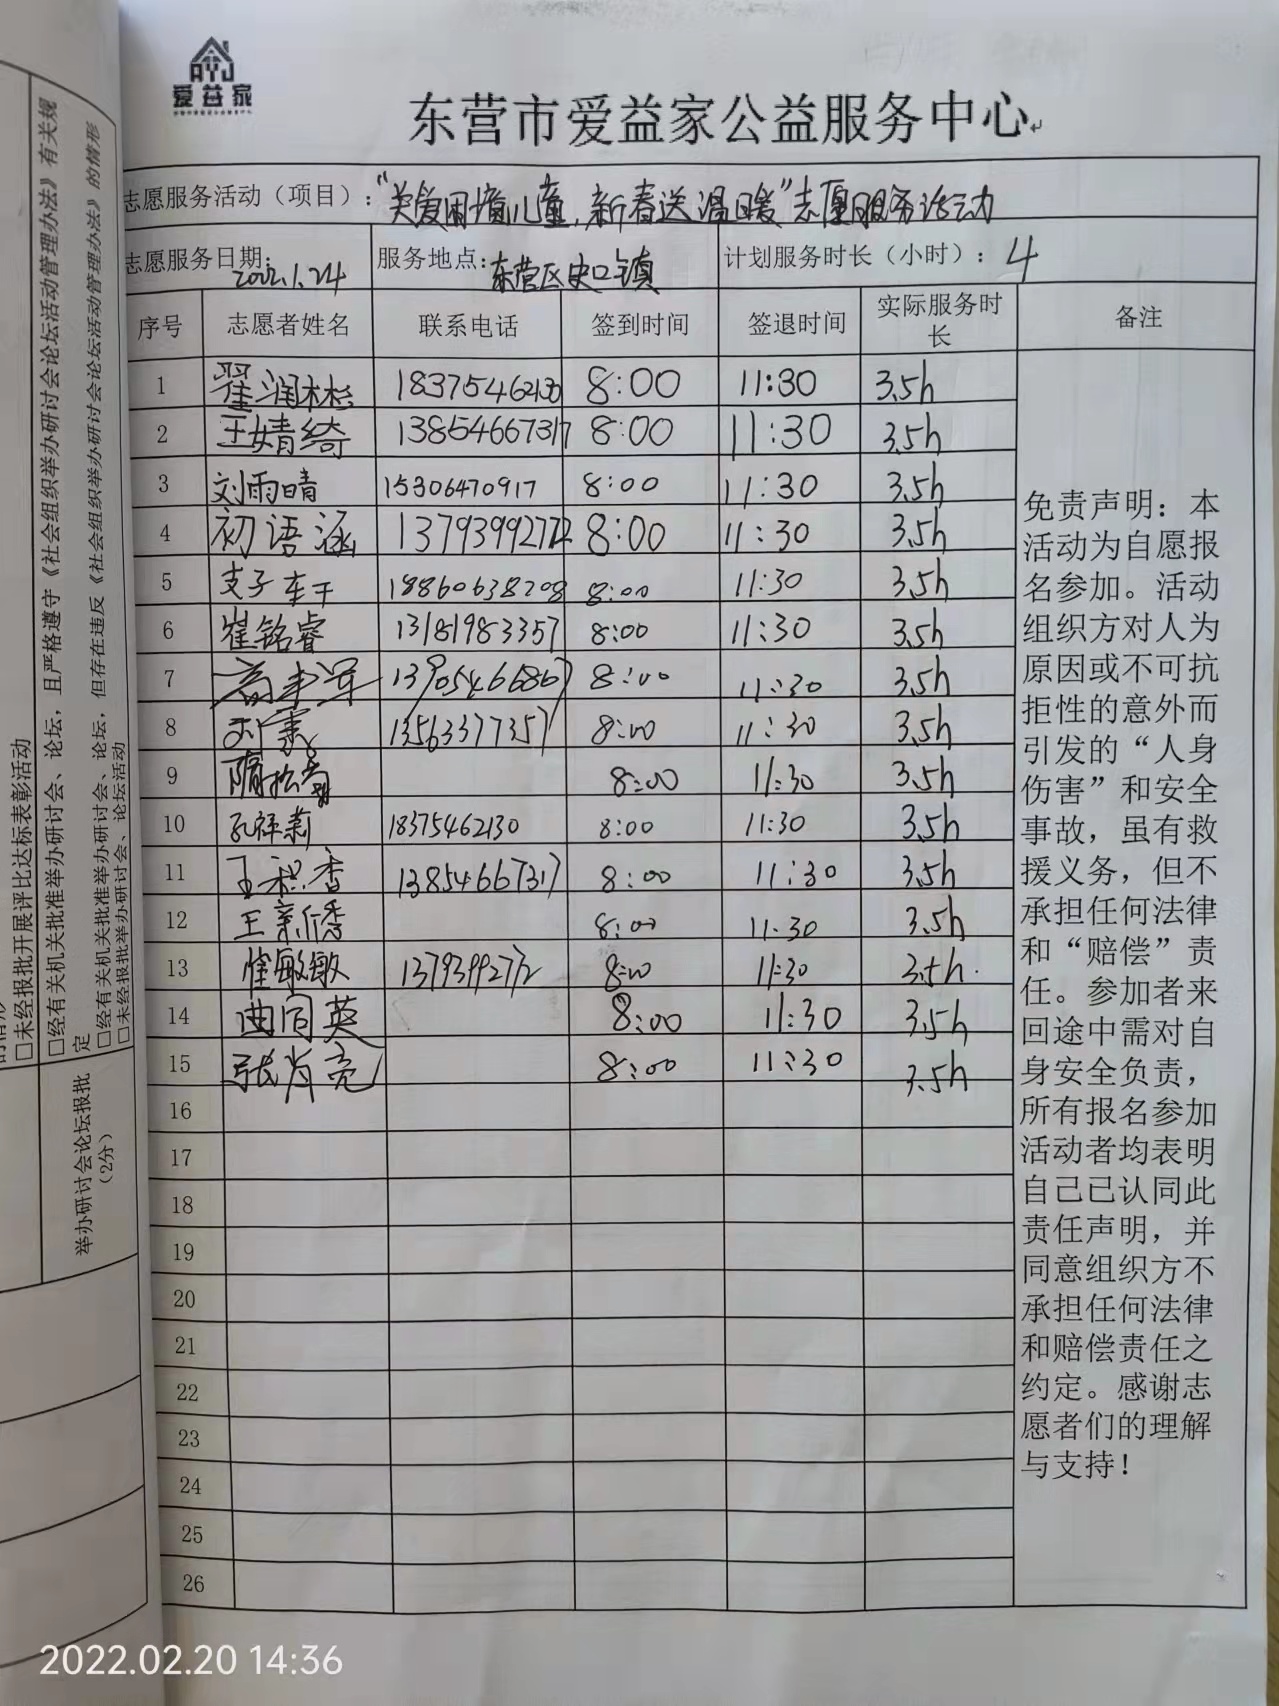 AYJ
爱益家
东营市爱益家公益服务中心
志愿服务活动（项目）：“关爱困境儿童，新春送温暖”志愿服务活动
志愿服务日期：2022.1.24 服务地点：东营区史口镇 计划服务时长（小时）：4
序号 志愿者姓名 联系电话 签到时间 签退时间 实际服务时长 备注
1 翟润彬 18375462130 8:00 11:30 3.5h
2 王婧绮 13854667317 8:00 11:30 3.5h
3 刘雨晴 15306470917 8:00 11:30 3.5h
4 初语涵 13793992772 8:00 11:30 3.5h
5 支子车干 18860638208 8:00 11:30 3.5h
6 崔铭睿 13181983357 8:00 11:30 3.5h
7 8:00 11:30 3.5h
8 13563377357 8:00 11:30 3.5h
9 8:00 11:30 3.5h
10 孔祥莉 18375462130 8:00 11:30 3.5h
11 王积香 13854667317 8:00 11:30 3.5h
12 王 8:00 11:30 3.5h
13 崔敏敏 8:00 11:30 3.5h.
14 曲同英 8:00 11:30 3.5h
15 张肖亮 8:00 11:30 3.5h
16
17
18
19
20
21
22
23
24
25
26
免责声明：本
活动为自愿报
名参加。活动
组织方对人为
原因或不可抗
拒性的意外而
引发的“人身
伤害”和安全
事故，虽有救
援义务，但不
承担任何法律
和“赔偿”责
任。参加者来
回途中需对自
身安全负责，
所有报名参加
活动者均表明
自己已认同此
责任声明，并
同意组织方不
承担任何法律
和赔偿责任之
约定。感谢志
愿者们的理解
与支持！
□未经报批开展评比达标表彰活动
□经有关机关批准举办研讨会、论坛，且严格遵守《社会组织举办研讨会论坛活动管理办法》有关规
定
□经有关机关批准举办研讨会、论坛，但存在违反《社会组织举办研讨会论坛活动管理办法》的情形
□未经报批举办研讨会、论坛活动
举办研讨会论坛报批
（2分）
2022.02.20 14:36